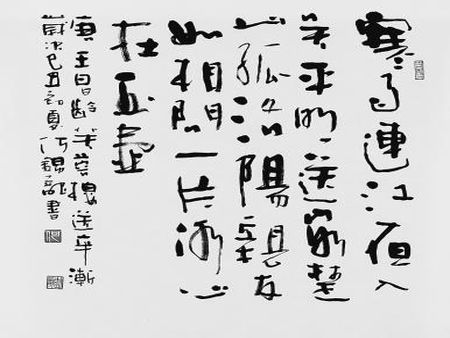 寒雨連江夜入
吳平明送客楚
山孤洛陽親友
如相問一片冰心
在玉壺
唐王昌齡芙蓉樓送辛漸
歲次己丑初夏書